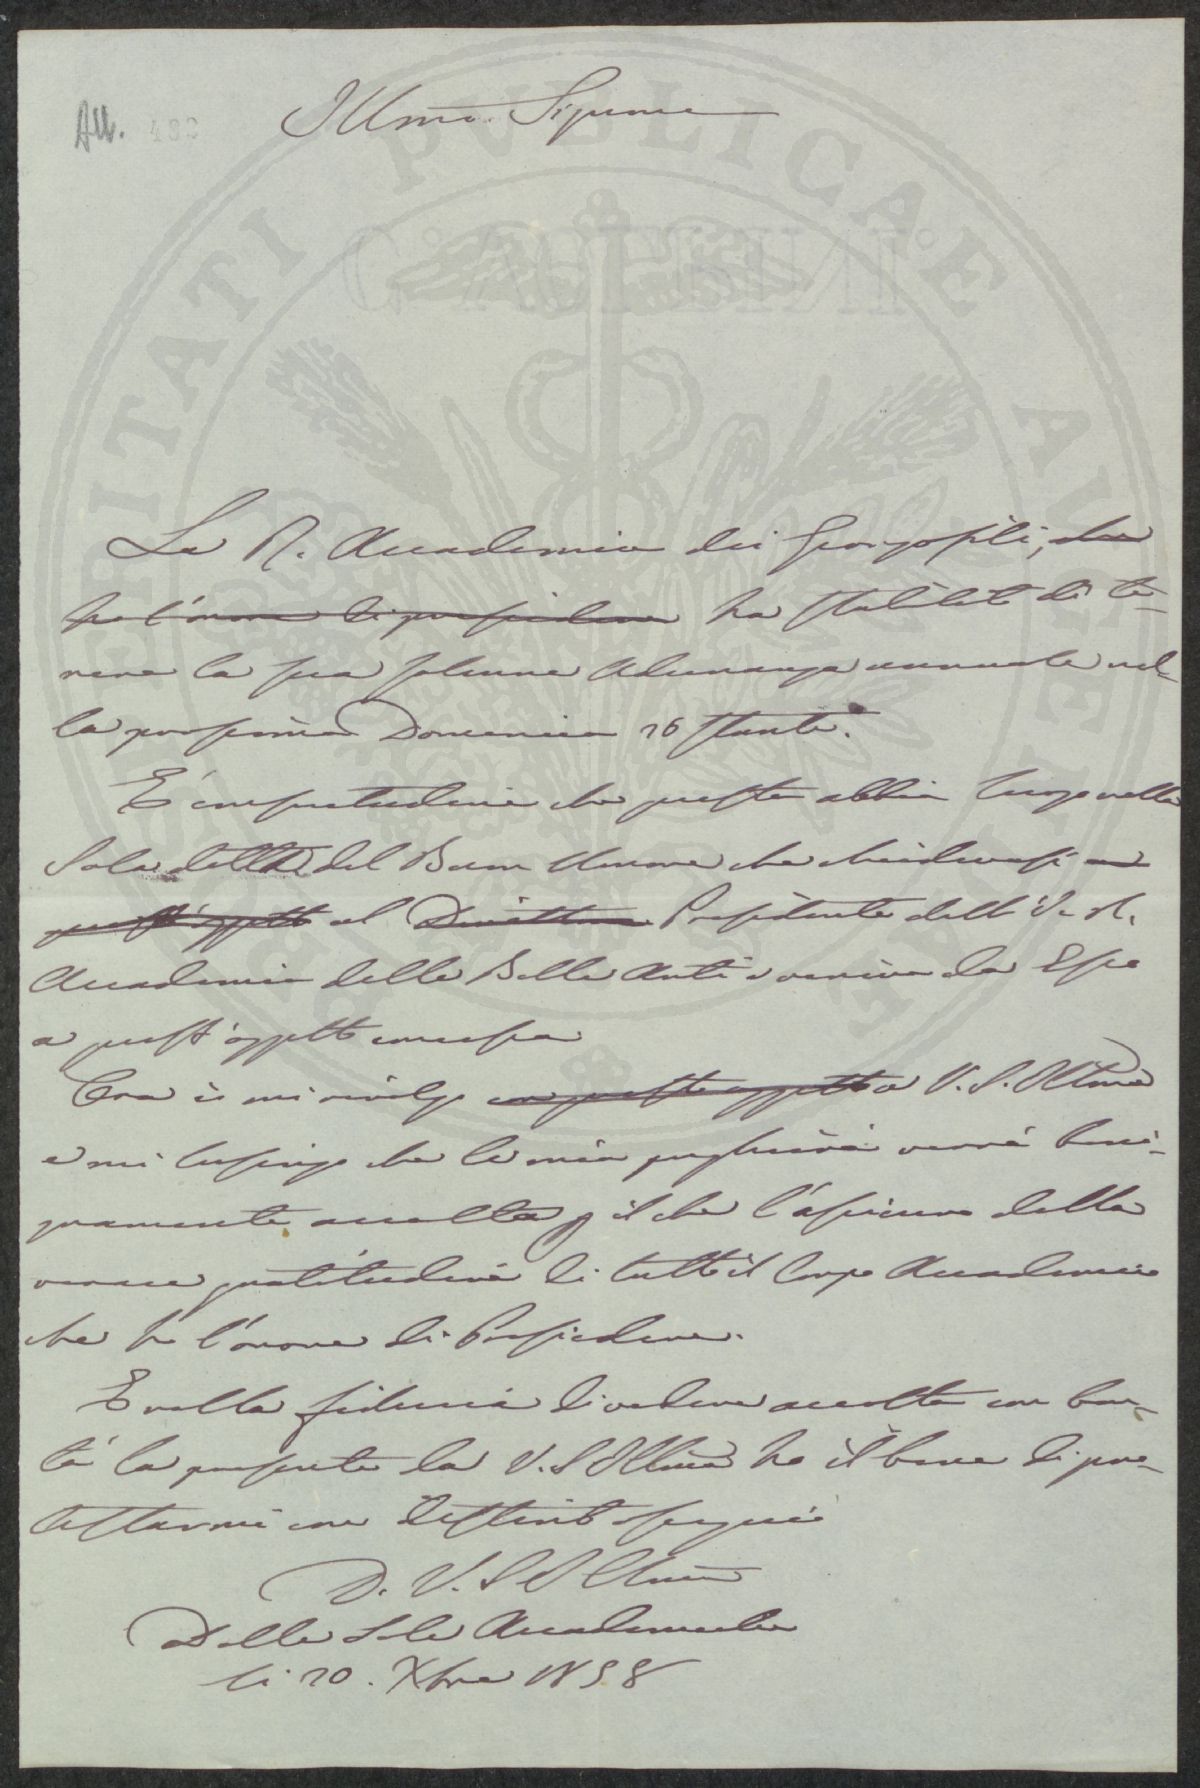 All. 480
Illmo. Signore
La R. Accademia dei Georgofili, che
ho l'onore di presiedere ha stabilito di te-
nere la sua solenne Adunanza annuale nel-
la prossima Domenica 26 stante.
È consuetudine che questa abbia luogo nella
Sala del Buon Umore che chiedevasi a
quest'oggetto al Direttore Presidente dell'I. e R.
Accademia delle Belle Arti e veniva da Esso
a quest'oggetto concessa
Ora io mi rivolgo a questo oggetto a V. S. Illma
e mi lusingo che la mia preghiera verrà beni-
gnamente accolta il che l'assicuro della
verace gratitudine di tutto il Corpo Accademico
che ho l'onore di Presiedere.
E nella fiducia di vedere accolta con bon-
tà la presente da V. S. Illma ho il bene di pro-
testarmi con distinto ossequio
D. V. S. Illma
Dalle Sale Accademiche
li 20. Xbre 1858
PVBLICAE